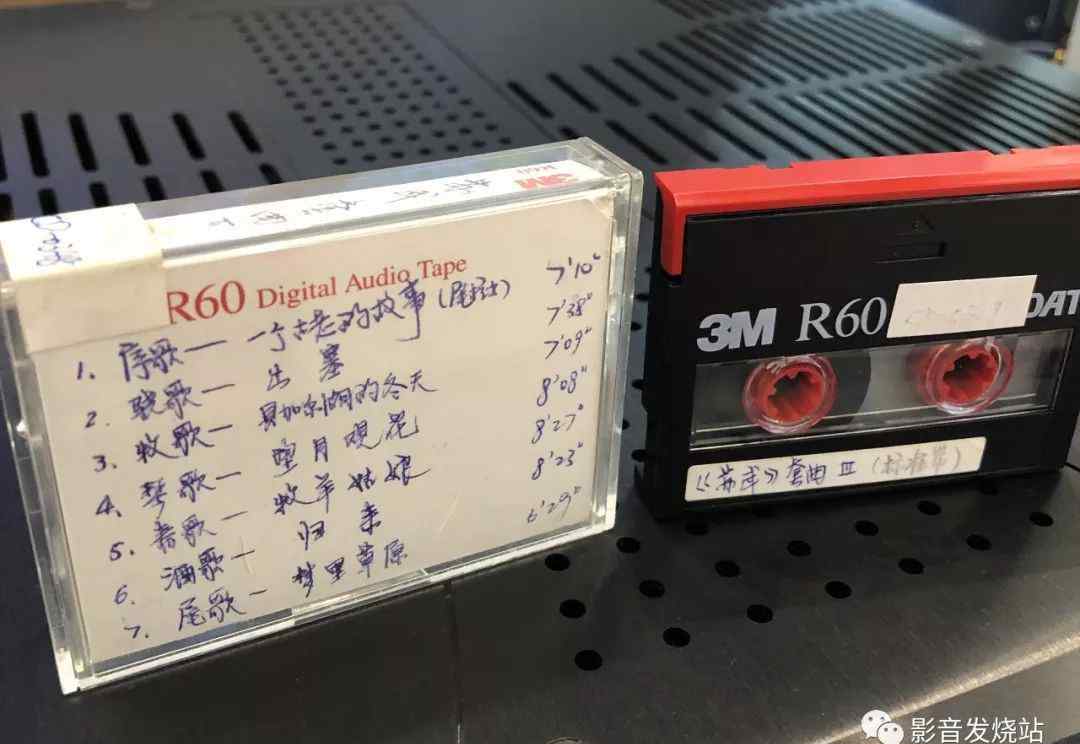 3M R60
R60 Digital Audio Tape
1. 序歌— 一个古老的故事 7'10"
2. 出塞 7'38"
3. 牧歌— 贝加尔湖的冬天 7'09"
4. 梦歌— 望月观花 8'08"
5. 牧羊姑娘 8'27"
6. 酒歌— 归来 8'23"
7. 尾歌— 梦里草原 6'29"
3M R60 DAT
《苏武》套曲 III (标准带)
影音发烧站